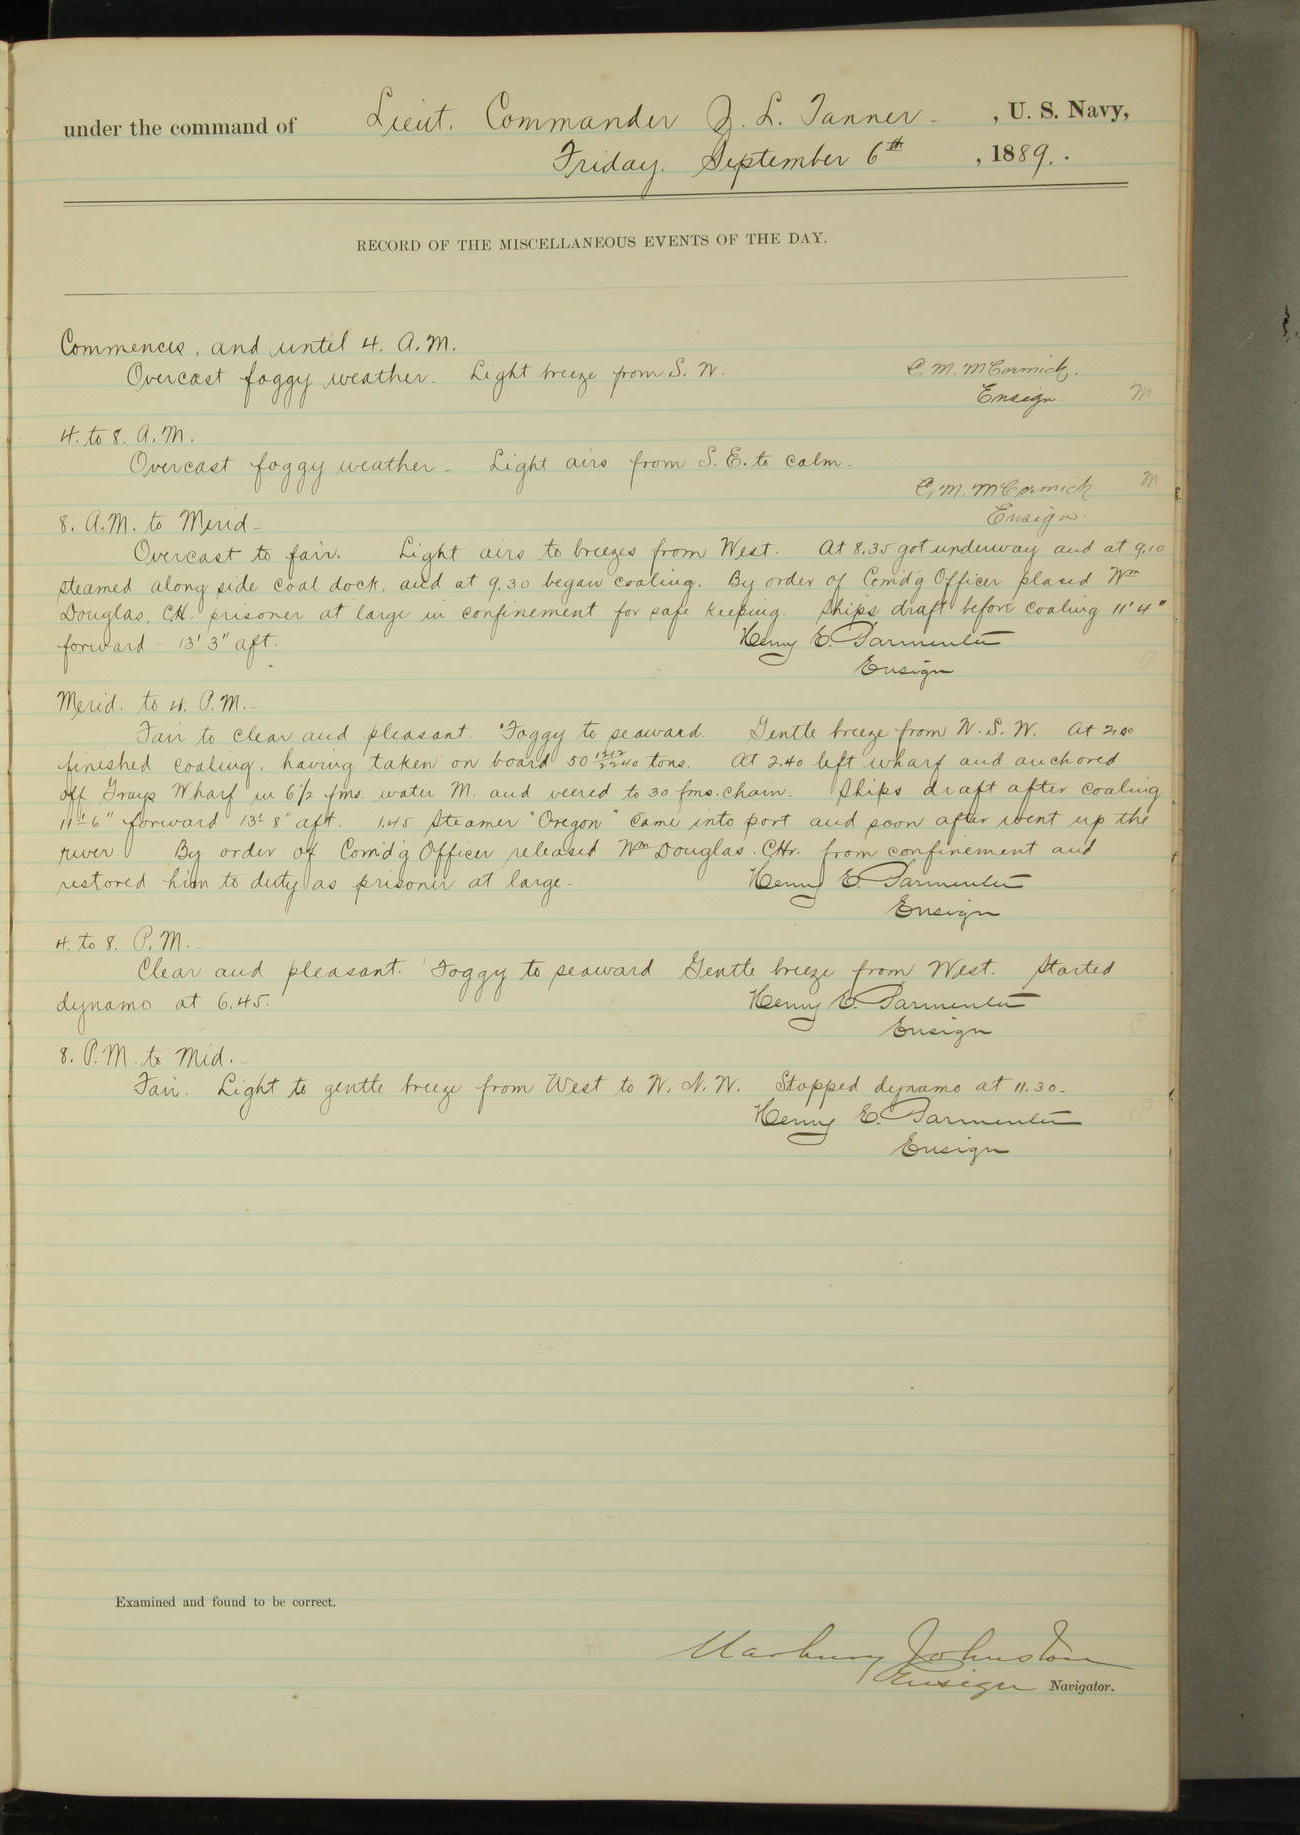 under the command of Lieut. Commander Z. L. Tanner - , U. S. Navy,
Friday. September 6th , 1889. .
RECORD OF THE MISCELLANEOUS EVENTS OF THE DAY.
Commences, and until 4. A.M.
Overcast foggy weather. Light breeze from S. W. C. M. McCormick.
Ensign. M
4. to 8. A.M.
Overcast foggy weather - Light airs from S. E. to calm -
C. M. McCormick M
8. A.M. to Merid - Ensign.
Overcast to fair. Light airs to breezes from West. At 8.35 got underway and at 9.10
steamed along side coal dock, and at 9.30 began coaling. By order of Com'd'g Officer placed Wm
Douglas, CH. prisoner at large in confinement for safe keeping. Ships draft before coaling 11' 4"
forward - 13' 3" aft. Henry E. Parmenter
Ensign P
Merid. to 4. P.M. -
Fair to clear and pleasant. Foggy to seaward. Gentle breeze from W. S. W. At 2.00
finished coaling, having taken on board 50 1212/2240 tons. At 2.40 left wharf and anchored
off Grays Wharf in 6 1/2 fms. water M. and veered to 30 fms. chain. Ships draft after coaling
11' 6" forward 13' 8" aft. 1.45 Steamer "Oregon" came into port and soon after went up the
river. By order of Com'd'g Officer released Wm Douglas. CHr. from confinement and
restored him to duty as prisoner at large - Henry E. Parmenter
Ensign
4. to 8. P.M. -
Clear and pleasant. Foggy to seaward. Gentle breeze from West. Started
dynamo at 6.45. Henry E. Parmenter
Ensign P
8. P.M. to Mid. -
Fair. Light to gentle breeze from West to W. N. W. Stopped dynamo at 11.30 -
Henry E. Parmenter P
Ensign
Examined and found to be correct.
Marbury Johnston
Ensign Navigator.